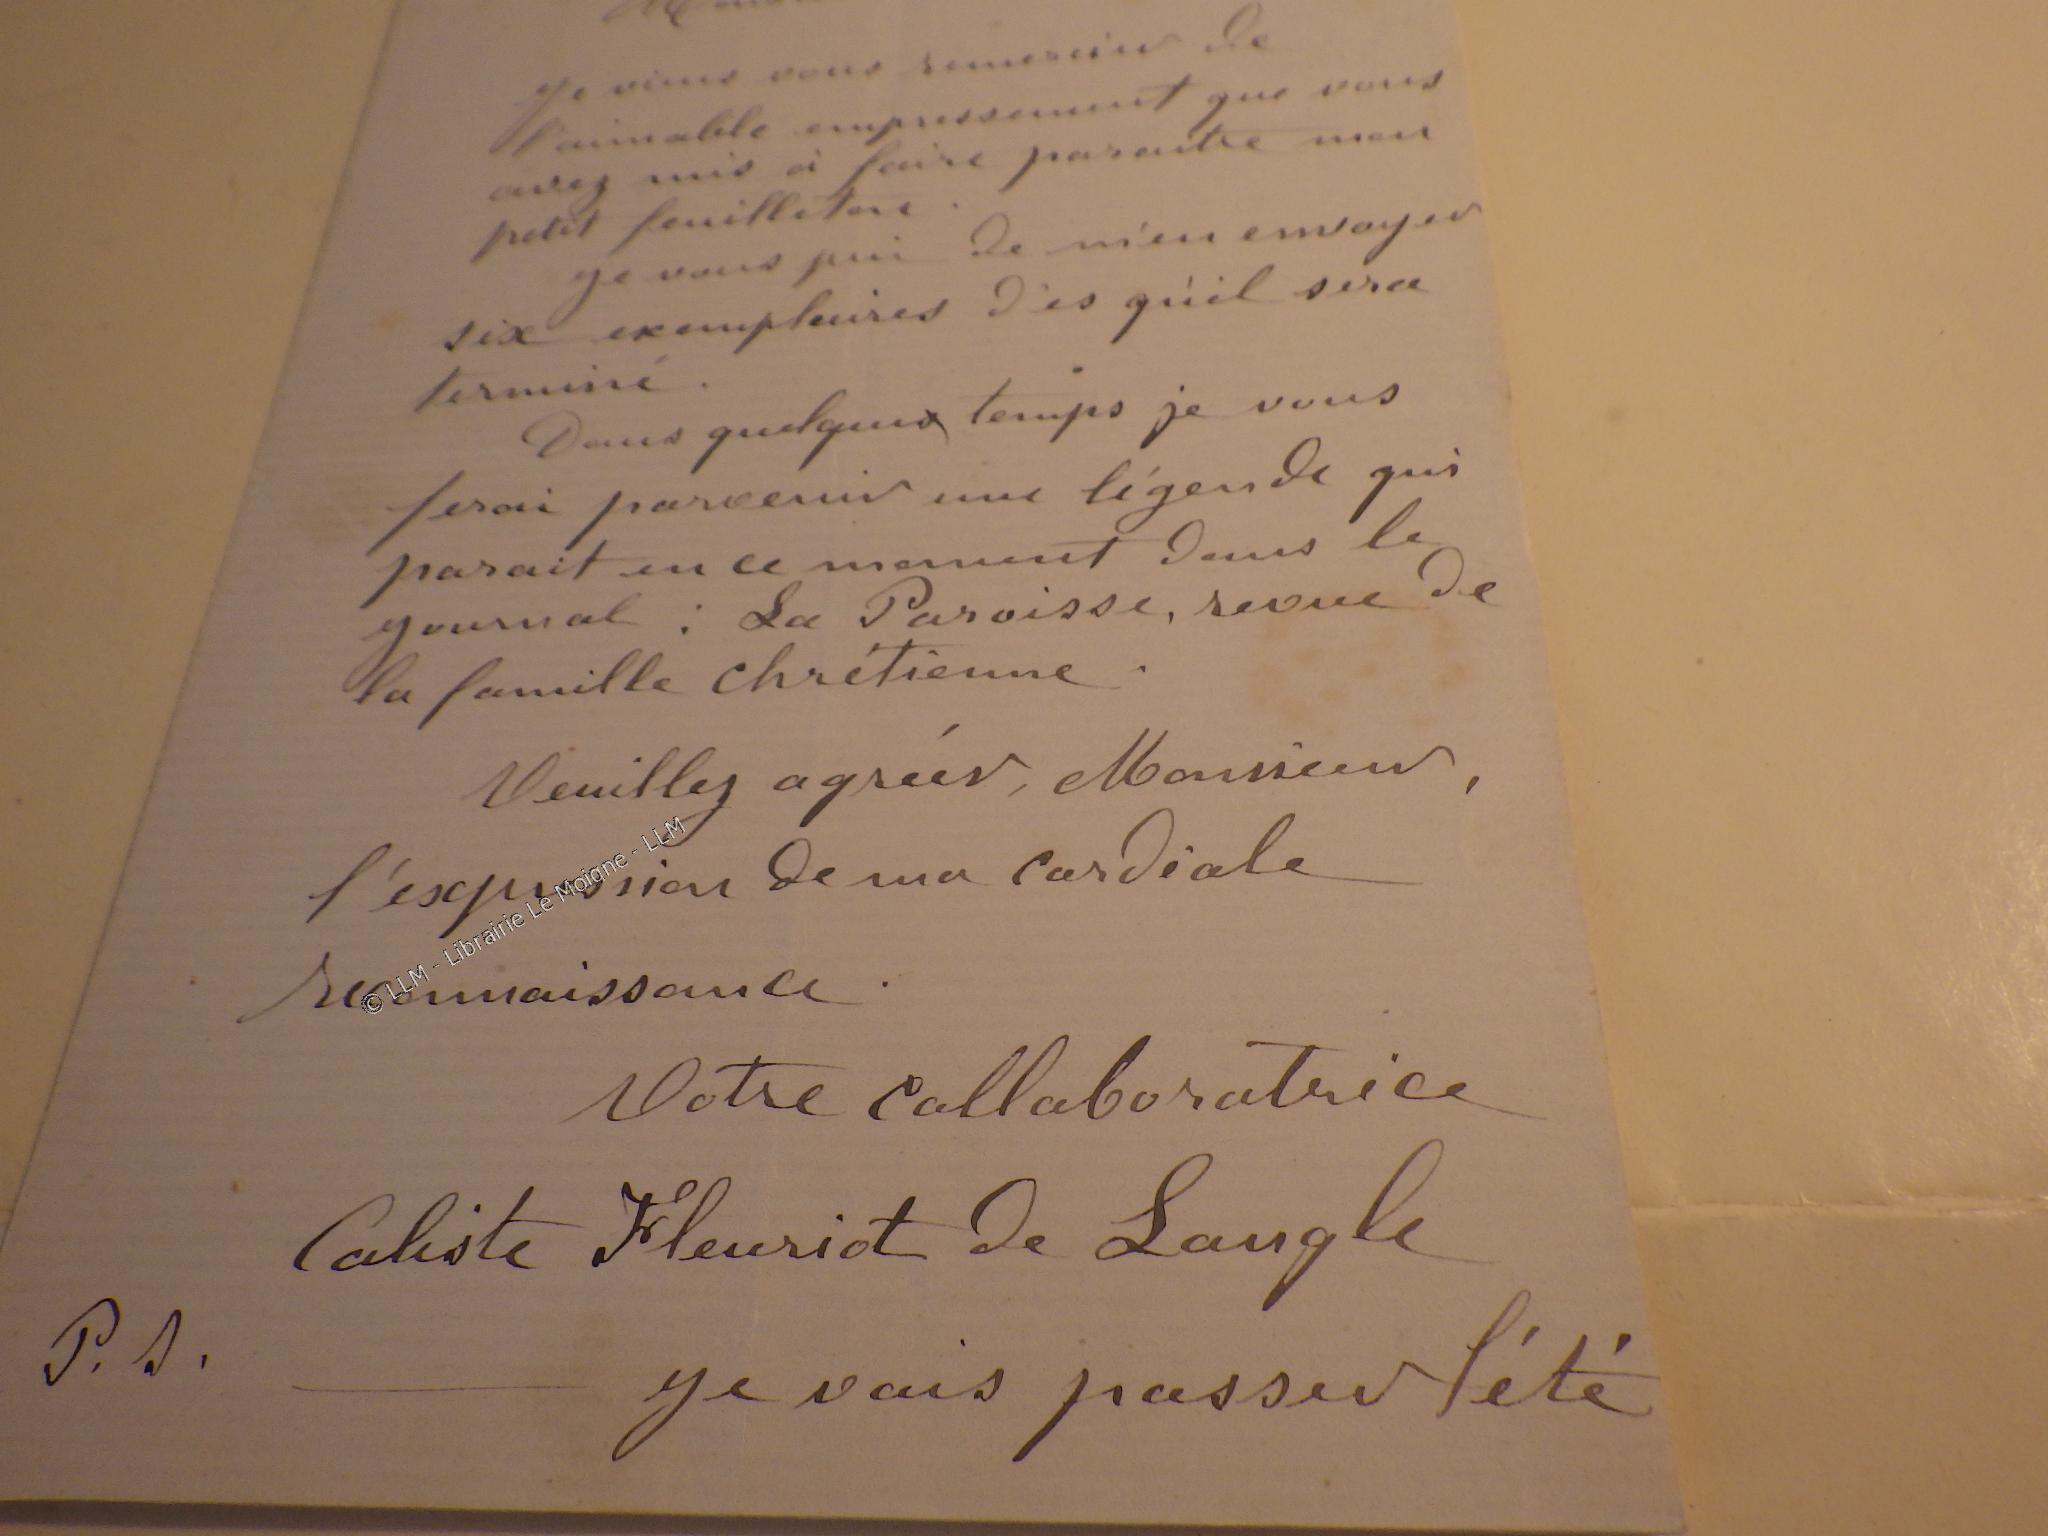 Je viens vous remercier de
l'aimable empressement que vous
avez mis à faire paraitre mon
petit feuilleton.
Je vous prie de m'en envoyer
six exemplaires d'es qu'il sera
terminé.
Dans quelques temps je vous
ferai parvenir une légende qui
parait en ce moment dans le
journal : La Paroisse, revue de
la famille chrétienne.
Veuillez agréer, Monsieur,
l'expression de ma cordiale
reconnaissance.
© LLM - Librairie Le Moigne - LLM
Votre collaboratrice
Caliste Fleuriot de Langle
P. S. Je vais passer l'été